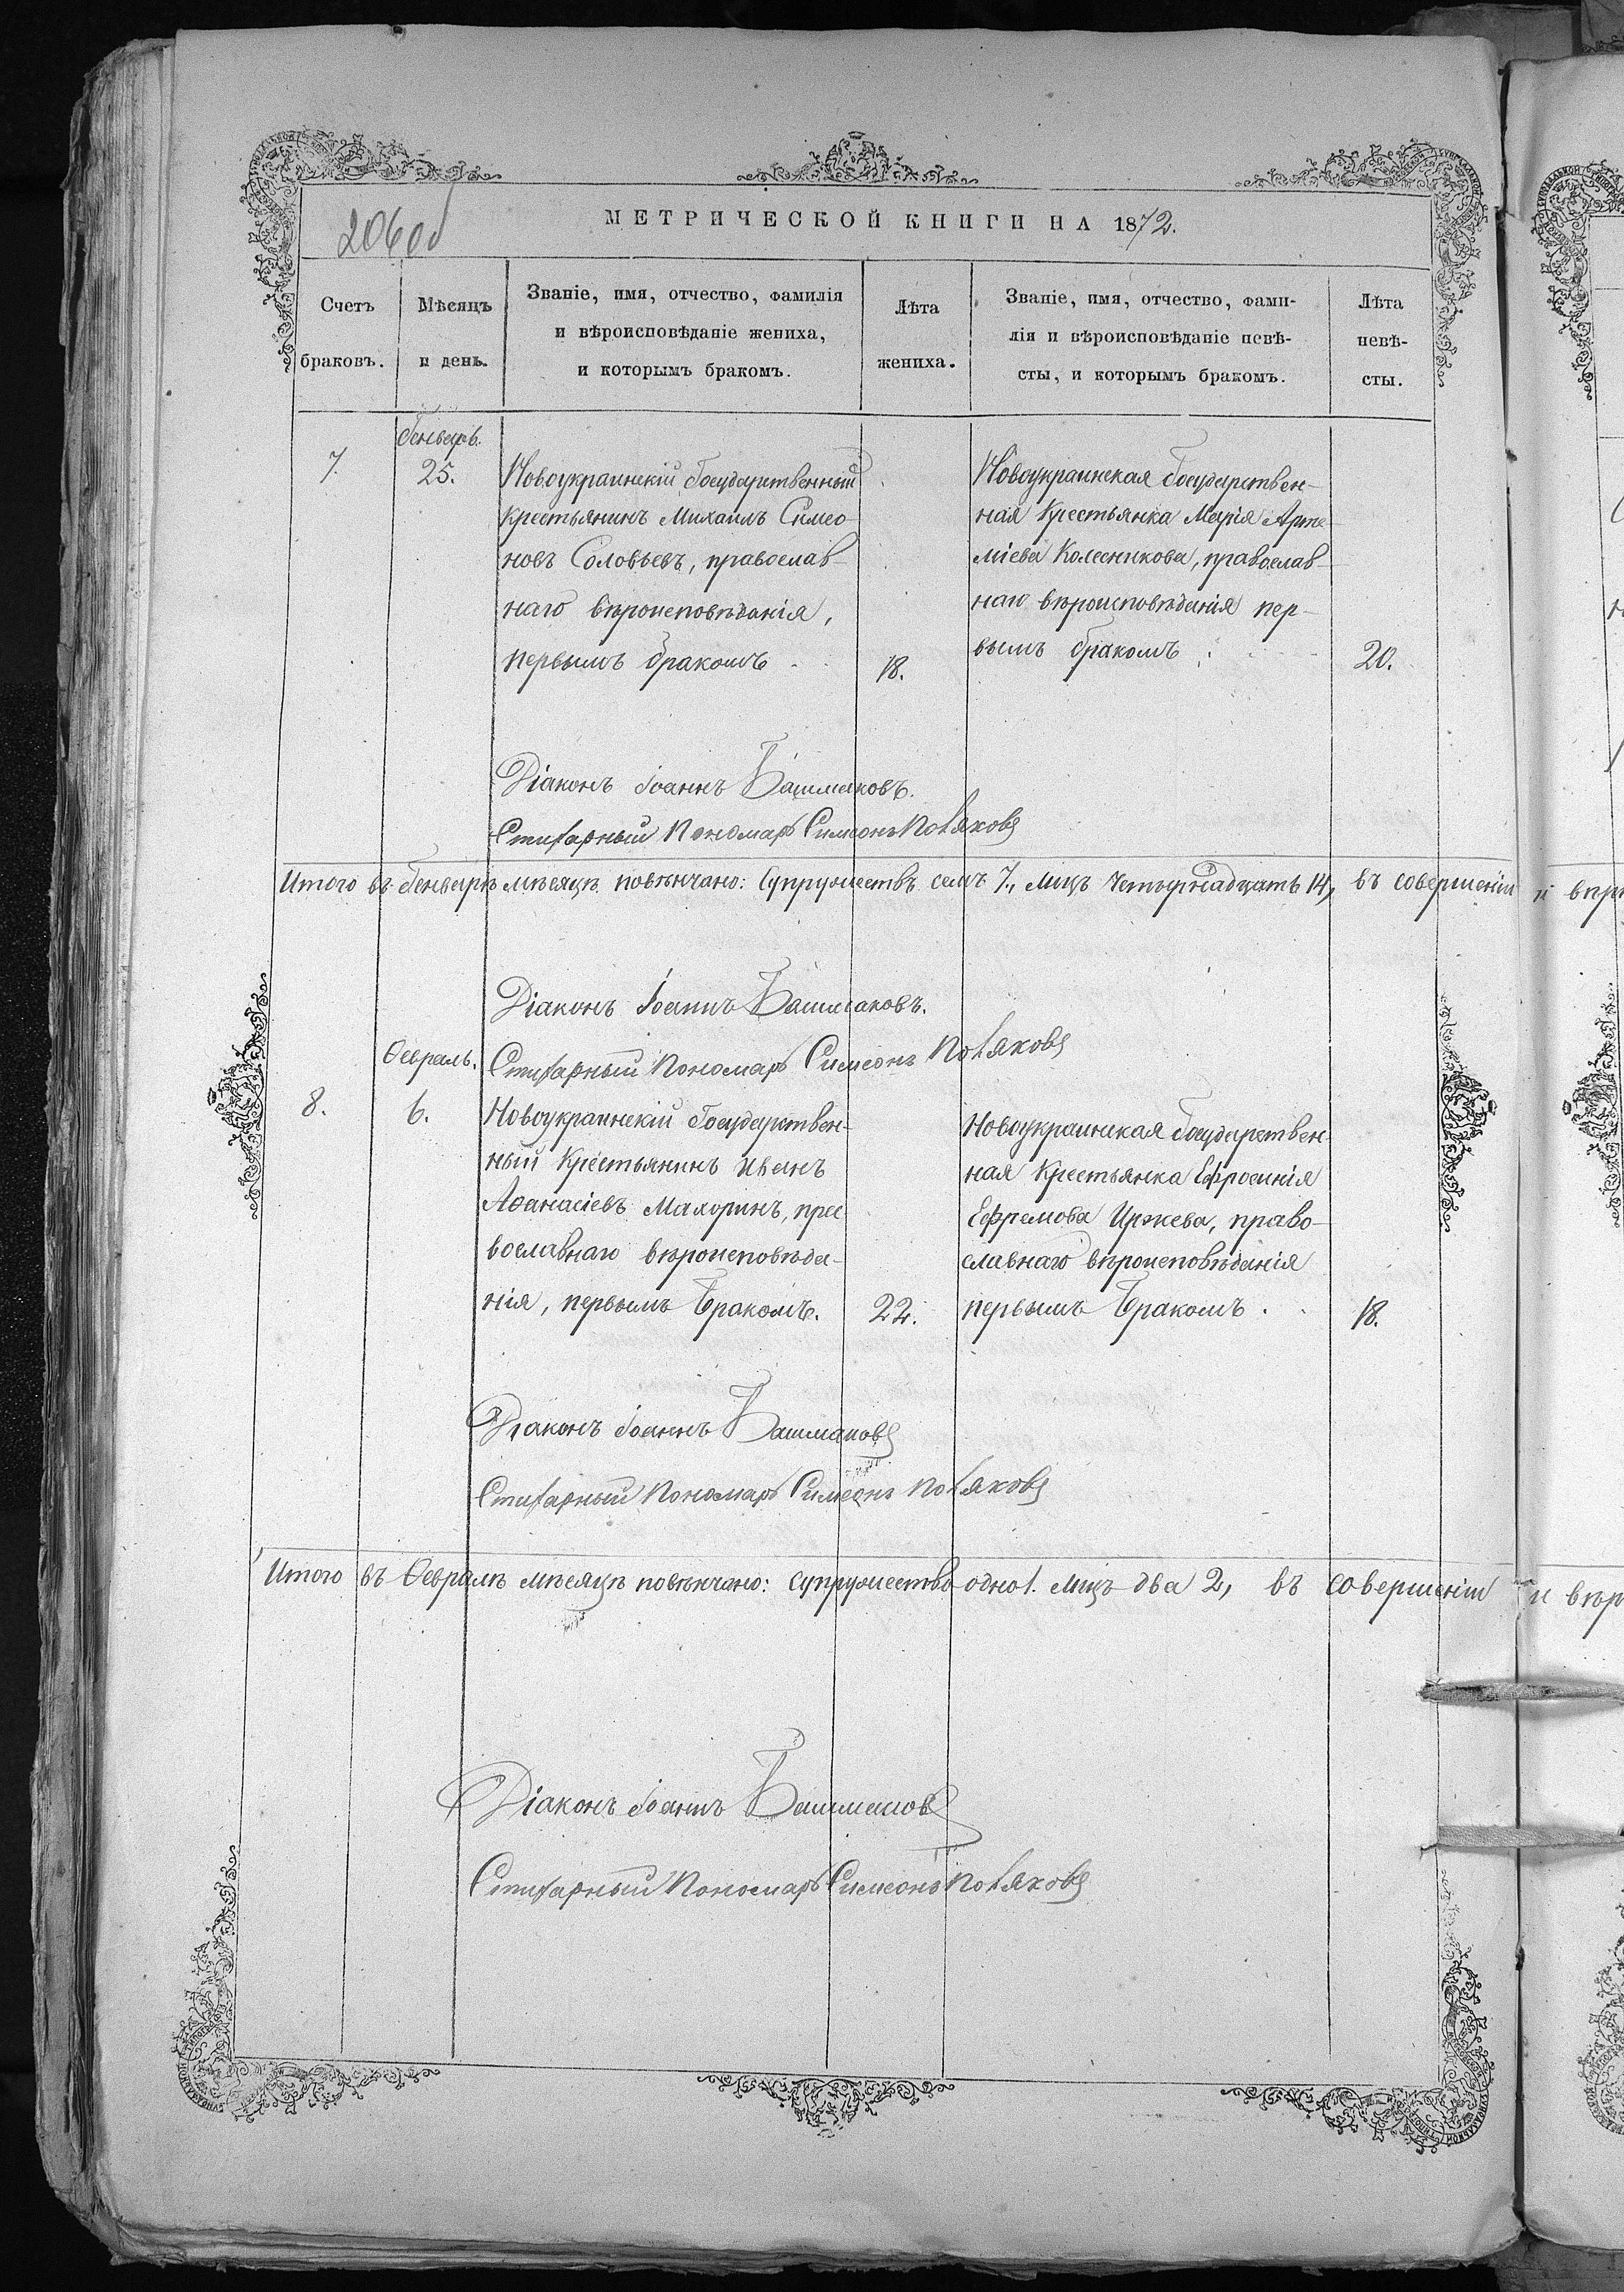 206об
МЕТРИЧЕСКОЙ КНИГИ НА 1872.
Счетъ браковъ.
Мѣсяцъ и день.
Званіе, имя, отчество, фамилія
и вѣроисповѣданіе жениха,
и которымъ бракомъ.
Лѣта жениха.
Званіе, имя, отчество, фами-
лія и вѣроисповѣданіе невѣ-
сты, и которымъ бракомъ.
Лѣта невѣ-
сты.
Генварь.
7.
25.
Новоукраинскій Государственный
Крестьянинъ Михаилъ Симео-
новъ Соловьевъ, православ-
наго вѣроисповѣданія,
первымъ бракомъ
18.
Новоукраинская Государствен-
ная Крестьянка Марія Арте-
міева Колесникова, православ-
наго вѣроисповѣданія пер-
вымъ бракомъ
20.
Діаконъ Іоаннъ Башмаковъ.
Стихарный Пономарь Симеонъ Поляковъ
Итого въ Генварѣ мѣсяцѣ повѣнчано: Супружествъ семь 7, Лицъ Четырнадцать 14, въ совершеніи и
Діаконъ Іоаннъ Башмаковъ.
Стихарный Пономарь Симеонъ Поляковъ
Ѳевраль.
8.
6.
Новоукраинскій Государствен-
ный Крестьянинъ Иванъ
Аѳанасіевъ Махоринъ, пра-
вославнаго вѣроисповѣда-
нія, первымъ Бракомъ.
22.
Новоукраинская Государствен-
ная Крестьянка Ефросинія
Ефремова Иржева, право-
славнаго вѣроисповѣданія
первымъ Бракомъ.
18.
Діаконъ Іоаннъ Башмаковъ
Стихарный Пономарь Симеонъ Поляковъ
Итого въ Ѳевралѣ мѣсяцѣ повѣнчано: супружество одно 1. лицъ два 2, въ совершеніи и
Діаконъ Іоаннъ Башмаковъ
Стихарный Пономарь Симеонъ Поляковъ